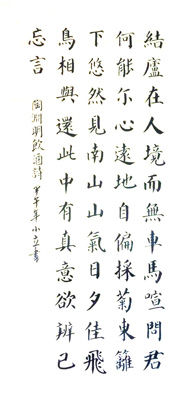 結廬在人境而無車馬喧問君
何能尓心遠地自偏採菊東籬
下悠然見南山山氣日夕佳飛
鳥相與還此中有真意欲辨已
忘言
陶淵明飲酒詩甲午年小立書